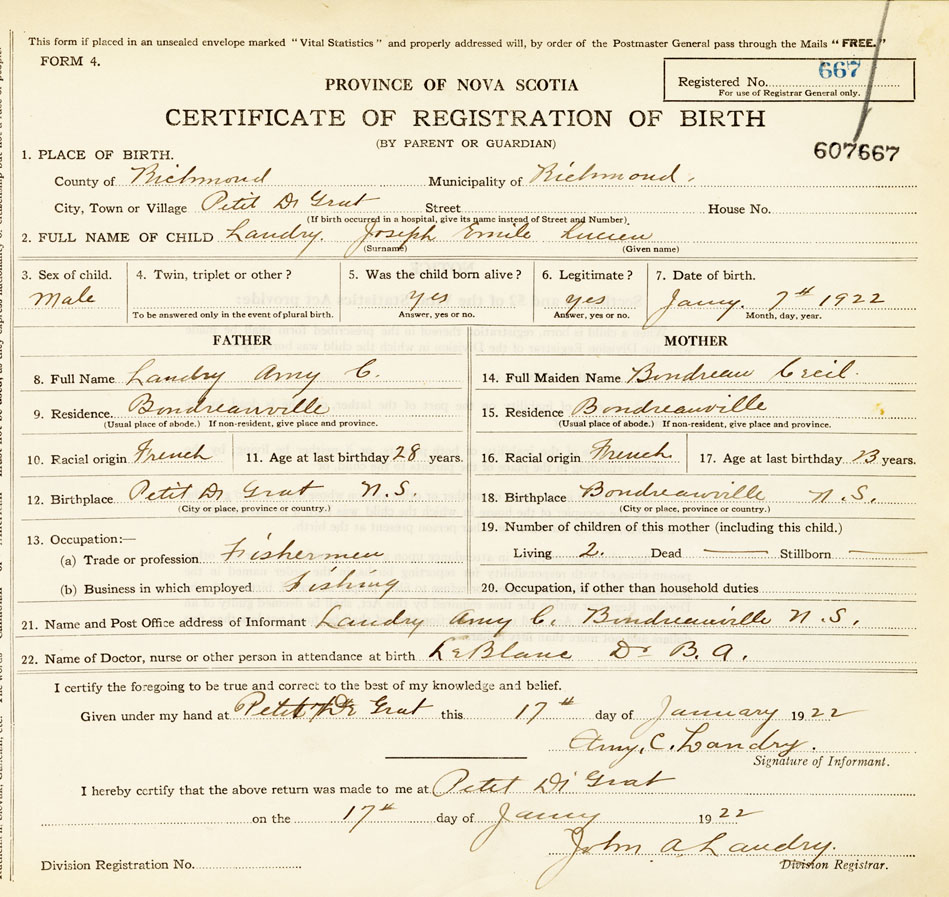 This form if placed in an unsealed envelope marked "Vital Statistics" and properly addressed will, by order of the Postmaster General pass through the Mails "FREE."
FORM 4.
Registered No. 667
For use of Registrar General only.
PROVINCE OF NOVA SCOTIA
CERTIFICATE OF REGISTRATION OF BIRTH
(BY PARENT OR GUARDIAN)
607667
1. PLACE OF BIRTH.
County of Richmond Municipality of Richmond.
City, Town or Village Petit De Grat Street House No.
(If birth occurred in a hospital, give its name instead of Street and Number)
2. FULL NAME OF CHILD Landry. Joseph Emile Lucien
(Surname) (Given name)
3. Sex of child. 4. Twin, triplet or other? 5. Was the child born alive? 6. Legitimate? 7. Date of birth.
Male yes yes Janry. 7th 1922
To be answered only in the event of plural birth. Answer, yes or no. Answer, yes or no. Month, day, year.
FATHER MOTHER
8. Full Name Landry Amy C. 14. Full Maiden Name Bondreau Cecil.
9. Residence. Bondreauville 15. Residence Bondreauville
(Usual place of abode.) If non-resident, give place and province. (Usual place of abode.) If non-resident, give place and province.
10. Racial origin French 11. Age at last birthday 28 years. 16. Racial origin French 17. Age at last birthday 23 years.
12. Birthplace Petit De Grat N.S. 18. Birthplace Bondreauville N.S.
(City or place, province or country.) (City or place, province or country.)
13. Occupation:— 19. Number of children of this mother (including this child.)
(a) Trade or profession Fishermen Living 2. Dead — Stillborn —
(b) Business in which employed Fishing 20. Occupation, if other than household duties
21. Name and Post Office address of Informant Landry Amy C. Bondreauville N.S.
22. Name of Doctor, nurse or other person in attendance at birth LeBlanc Dr B.A.
I certify the foregoing to be true and correct to the best of my knowledge and belief.
Given under my hand at Petit De Grat this 17th day of January 1922
Amy, C. Landry.
Signature of Informant.
I hereby certify that the above return was made to me at Petit De Grat
on the 17th day of Janry 1922
John A. Landry.
Division Registration No. Division Registrar.